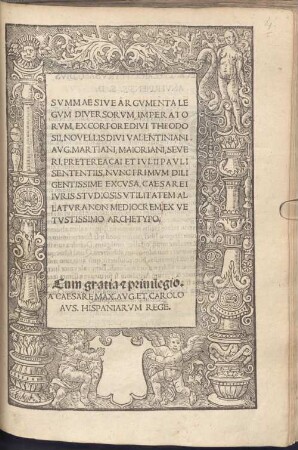 SVMMAE SIVE ARGVMENTA LE
GVM DIVERSORVM IMPERATO
RVM, EX CORPORE DIVI THEODO
SII, NOVELLIS DIVI VALENTINIANI
AVG. MARTIANI, MAIORIANI, SEVE
RI, PRETEREA CAII ET IVLII PAVLI
SENTENTIIS, NVNC PRIMVM DILI
GENTISSIME EXCVSA, CAESAREI
IVRIS STVDIOSIS VTILITATEM AL
LATVRA NON MEDIOCREM, EX VE
TVSTISSIMO ARCHETYPO.
Cum gratia & privilegio.
A CAESARE MAX. AVG. ET CAROLO
AVS. HISPANIARVM REGE.